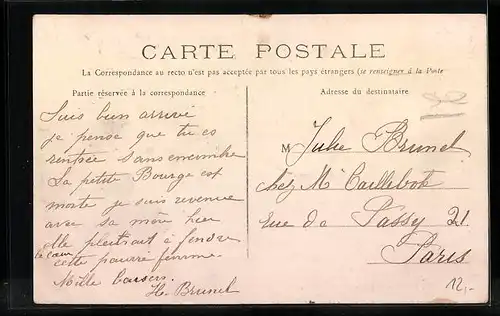 CARTE POSTALE
La Correspondance au recto n'est pas acceptée par tous les pays étrangers (se renseigner à la Poste
Partie réservée à la correspondance
Adresse du destinataire
Suis bien arrivé
je pense que tu es
rentrée sans encombre
La petite Bourge est
morte je suis revenue
avec sa mère hier
elle pleurait à fendre
le cœur cette pauvre femme
Mille baisers.
H. Brunel
180
M Julie Brunel
chez Mr Caillebotte
rue de Passy 21
Paris
12,-